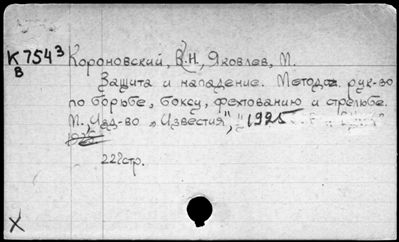 К 7543 Короновский, В.Н., Яковлев, М.
В
Защита и нападение. Метод. рук-во
по борьбе, боксу, фехтованию и стрельбе.
М., Изд-во "Известия", 1925
222стр.
X